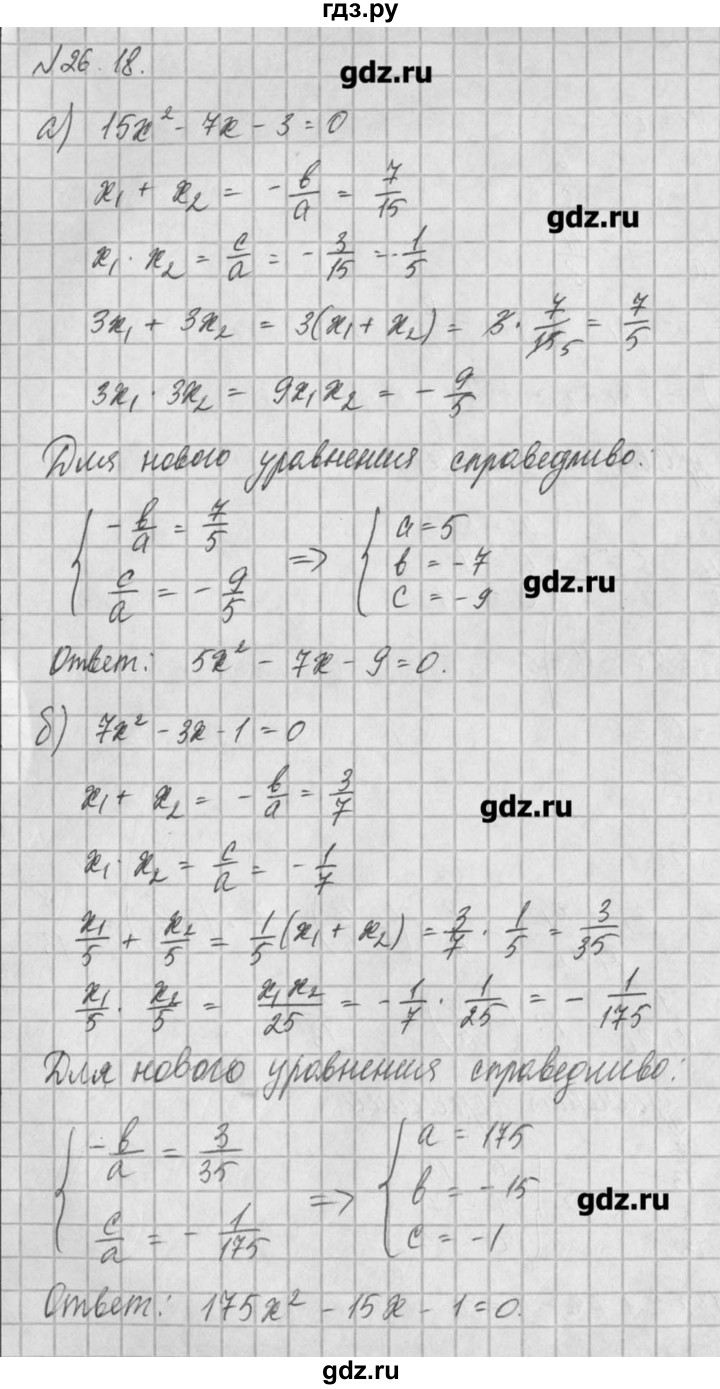 гдз.ру
№26.18.
gdz.ru
а) 15x² - 7x - 3 = 0
x₁ + x₂ = - b/a = 7/15
gdz.ru
x₁ · x₂ = c/a = - 3/15 = - 1/5
3x₁ + 3x₂ = 3(x₁ + x₂) = 3 · 7/15 5 = 7/5
3x₁ · 3x₂ = 9x₁x₂ = - 9/5
Для нового уравнения справедливо:
{ - b/a = 7/5 => { a = 5
b = - 7
c/a = - 9/5 c = - 9
gdz.ru
Ответ: 5x² - 7x - 9 = 0.
б) 7x² - 3x - 1 = 0
x₁ + x₂ = - b/a = 3/7
gdz.ru
x₁ · x₂ = c/a = - 1/7
x₁/5 + x₂/5 = 1/5 (x₁ + x₂) = 3/7 · 1/5 = 3/35
x₁/5 · x₂/5 = x₁x₂/25 = - 1/7 · 1/25 = - 1/175
Для нового уравнения справедливо:
{ - b/a = 3/35 => { a = 175
b = - 15
c/a = - 1/175 c = - 1
gdz.ru
Ответ: 175x² - 15x - 1 = 0.
gdz.ru